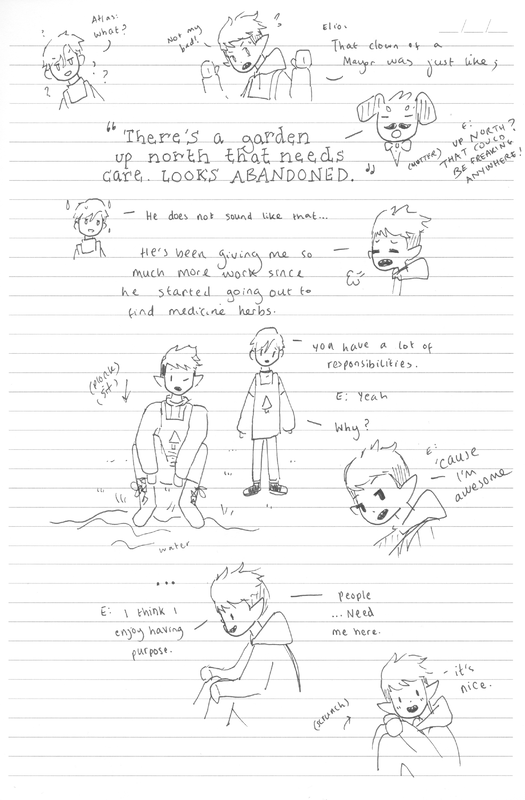 Atlas:
what?
?
?
?
Not my
bad!
Elio:
__/__/__
That clown of a
Mayor was just like;
"There's a garden
up north that needs
care. LOOKS ABANDONED."
E:
UP NORTH?
THAT COULD
BE FREAKING
ANYWHERE!
He does not sound like that...
He's been giving me so
much more work since
he started going out to
find medicine herbs.
you have a lot of
responsibilities.
(PLONK)
(sit)
E: Yeah
Why?
E:
'cause
I'm
awesome
water
...
E: I think I
enjoy having
purpose.
people
...Need
me here.
it's
nice.
(scrunch)